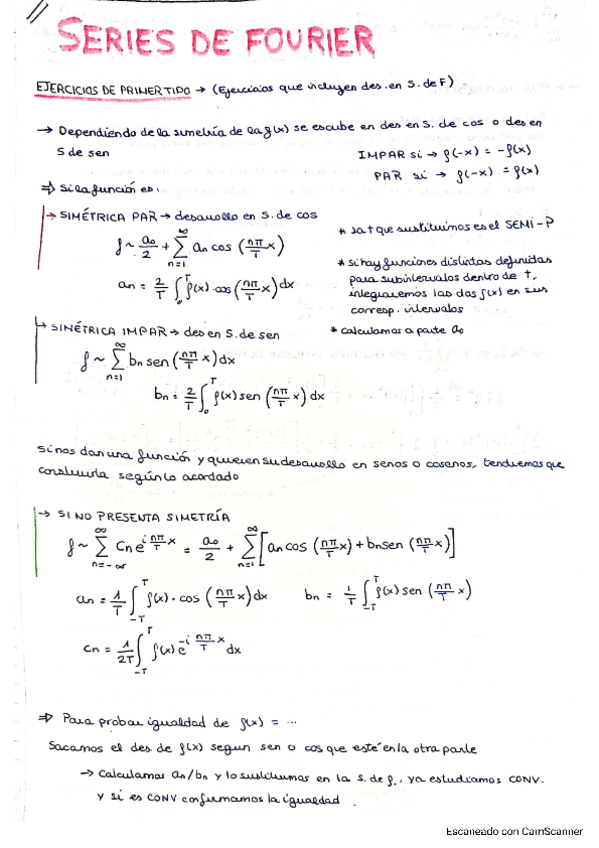 SERIES DE FOURIER
EJERCICIOS DE PRIMER TIPO → (Ejercicios que incluyen des. en S. de F)
→ Dependiendo de la simetría de la f(x) se escribe en des en S. de cos o des en
S de sen
IMPAR si → f(-x) = -f(x)
PAR si → f(-x) = f(x)
⇒ Si la función es:
→ SIMÉTRICA PAR → desarrollo en S. de cos
f ~ a₀/2 + ∑_{n=1}^{∞} an cos (nπ/T x)
an = 2/T ∫₀^T f(x)·cos(nπ/T x)dx
* la T que sustituimos es el SEMI-P
* si hay funciones distintas definidas
para subintervalos dentro de T,
integraremos las dos f(x) en sus
corresp. intervalos
* calculamos a parte a₀
→ SIMÉTRICA IMPAR → des en S. de sen
f ~ ∑_{n=1}^{∞} bn sen(nπ/T x)dx
bn = 2/T ∫₀^T f(x) sen (nπ/T x) dx
Si nos dan una función y quieren su desarrollo en senos o cosenos, tendremos que
construirla según lo acordado
→ SI NO PRESENTA SIMETRÍA
f ~ ∑_{n=-∞}^{∞} Cn e^{i nπ/T x} = a₀/2 + ∑_{n=1}^{∞} [an cos (nπ/T x) + bn sen (nπ/T x)]
an = 1/T ∫_{-T}^{T} f(x)·cos (nπ/T x)dx bn = 1/T ∫_{-T}^{T} f(x) sen (nπ/T x)
Cn = 1/2T ∫_{-T}^{T} f(x) e^{-i nπ/T x} dx
⇒ Para probar igualdad de f(x) = ...
Sacamos el des. de f(x) segun sen o cos que esté en la otra parte
→ Calculamos an/bn y lo sustituimos en la s. de f, ya estudiamos CONV.
y si es CONV confirmamos la igualdad.
Escaneado con CamScanner